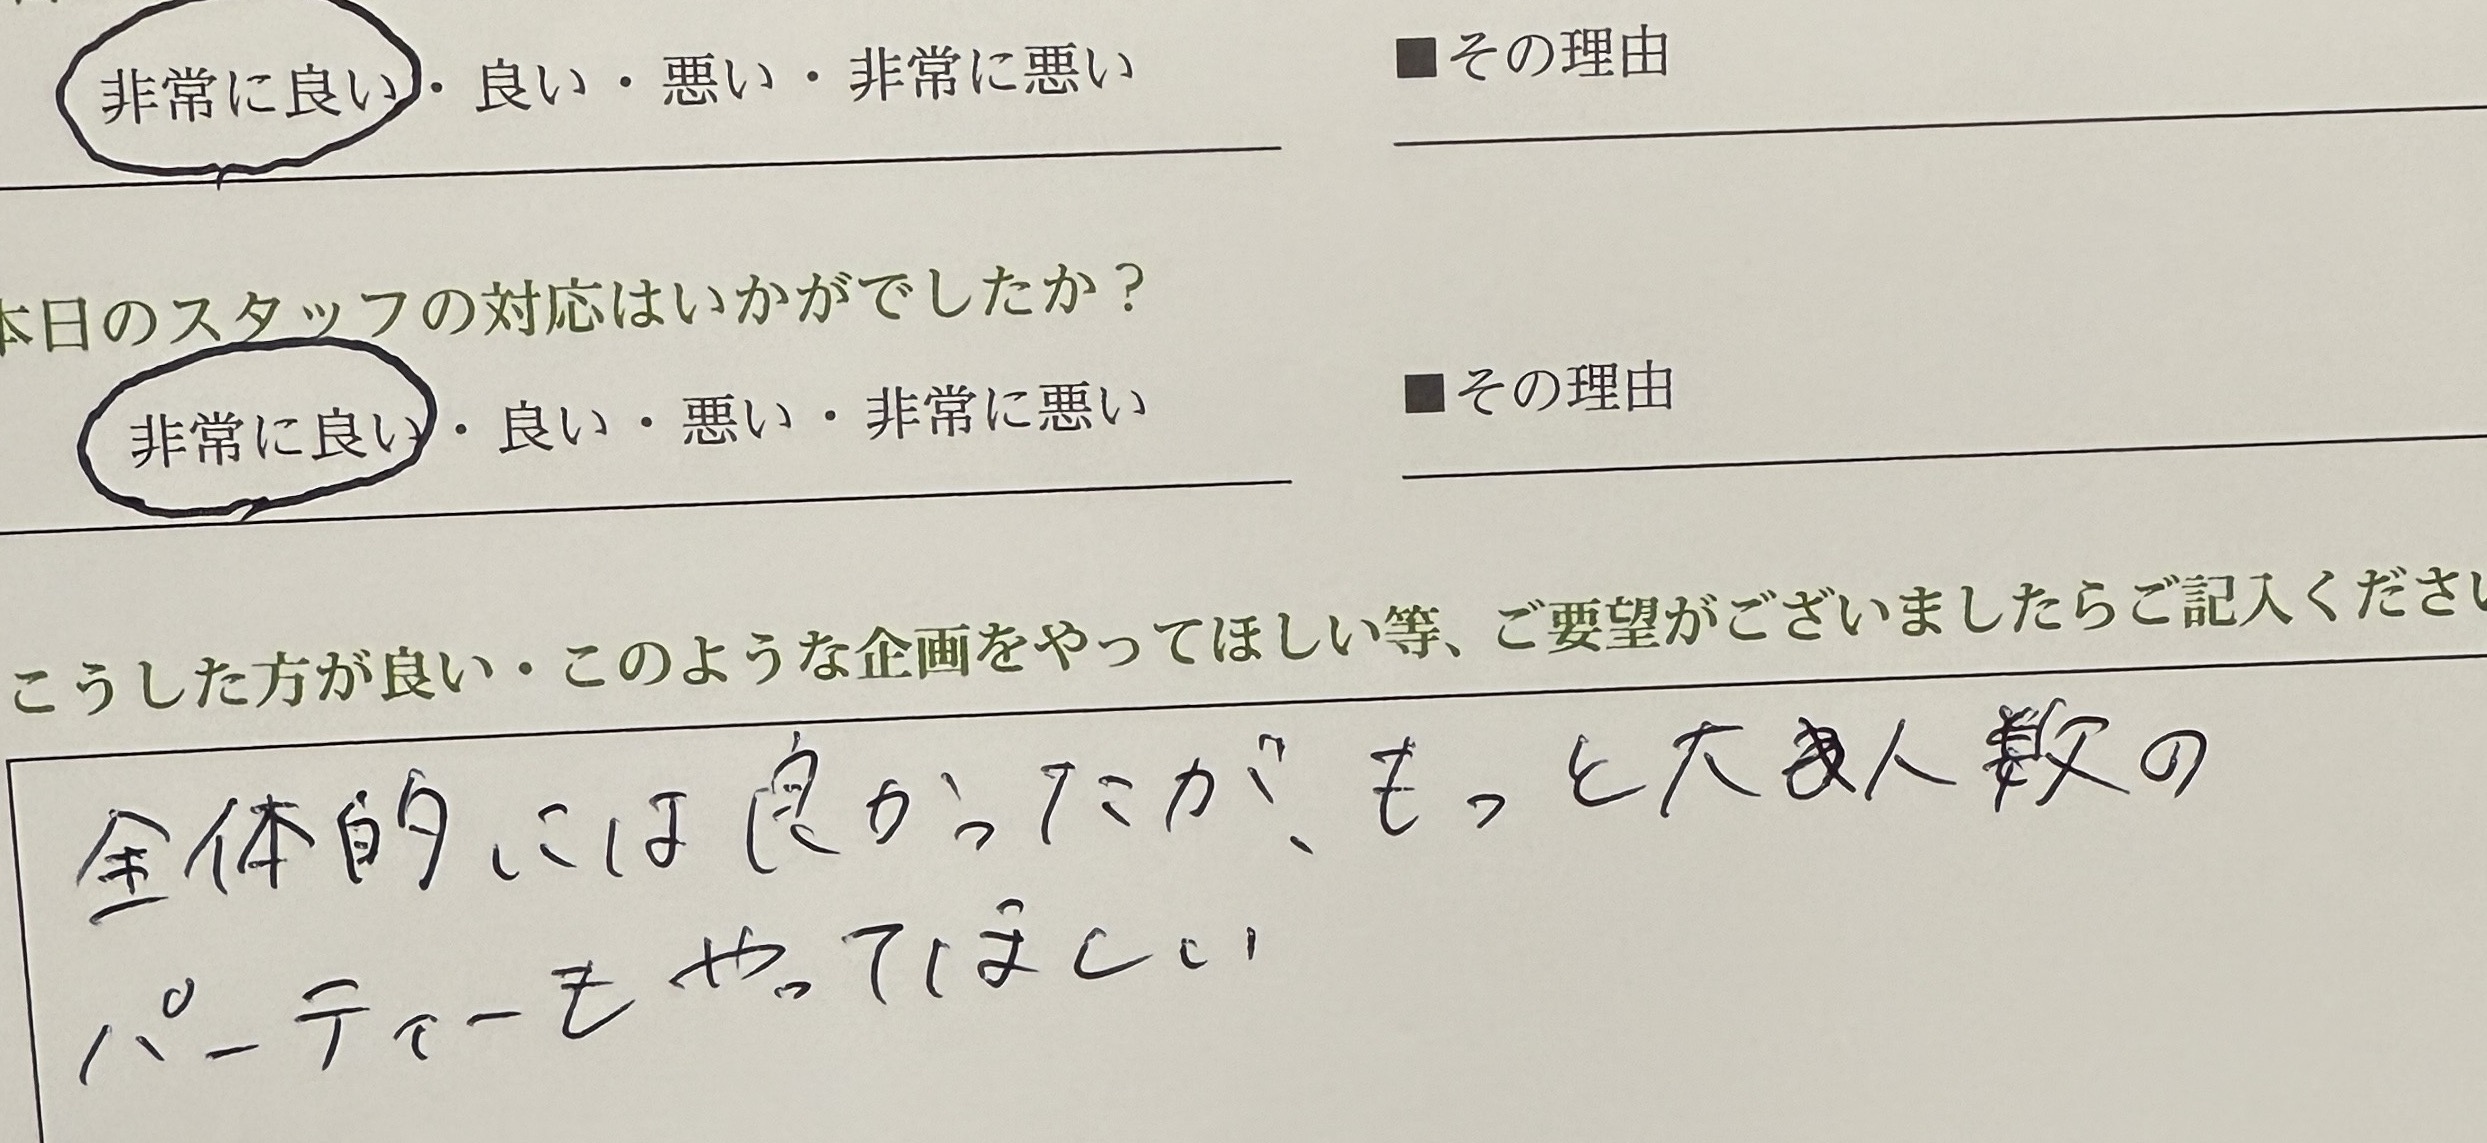 非常に良い・良い・悪い・非常に悪い
■その理由
本日のスタッフの対応はいかがでしたか？
非常に良い・良い・悪い・非常に悪い
■その理由
こうした方が良い・このような企画をやってほしい等、ご要望がございましたらご記入ください
全体的には良かったが、もっと大人数の
パーティーもやってほしい